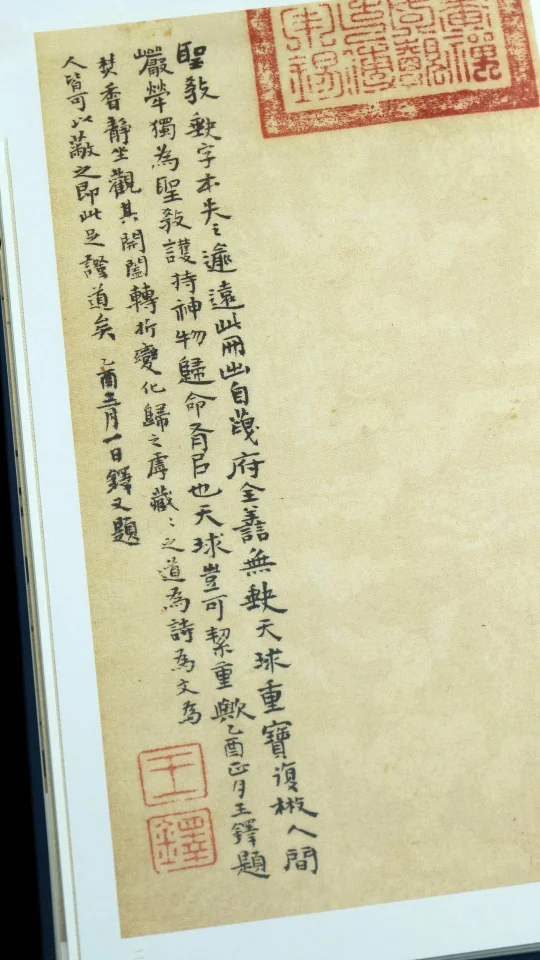 聖敎缺字本失〻遙遠此冊出自府全譱無缺天球重寶復人間
巖犖獨為聖敎護持神物歸命有㠯也天球豈可絜重歟乙酉正月王鐸題
焚香靜坐觀其開闔轉折變化歸之虖藏〻之道為詩為文為
人皆可以蔽之即此足證道矣乙酉三月一日鐸又題
王
鐸